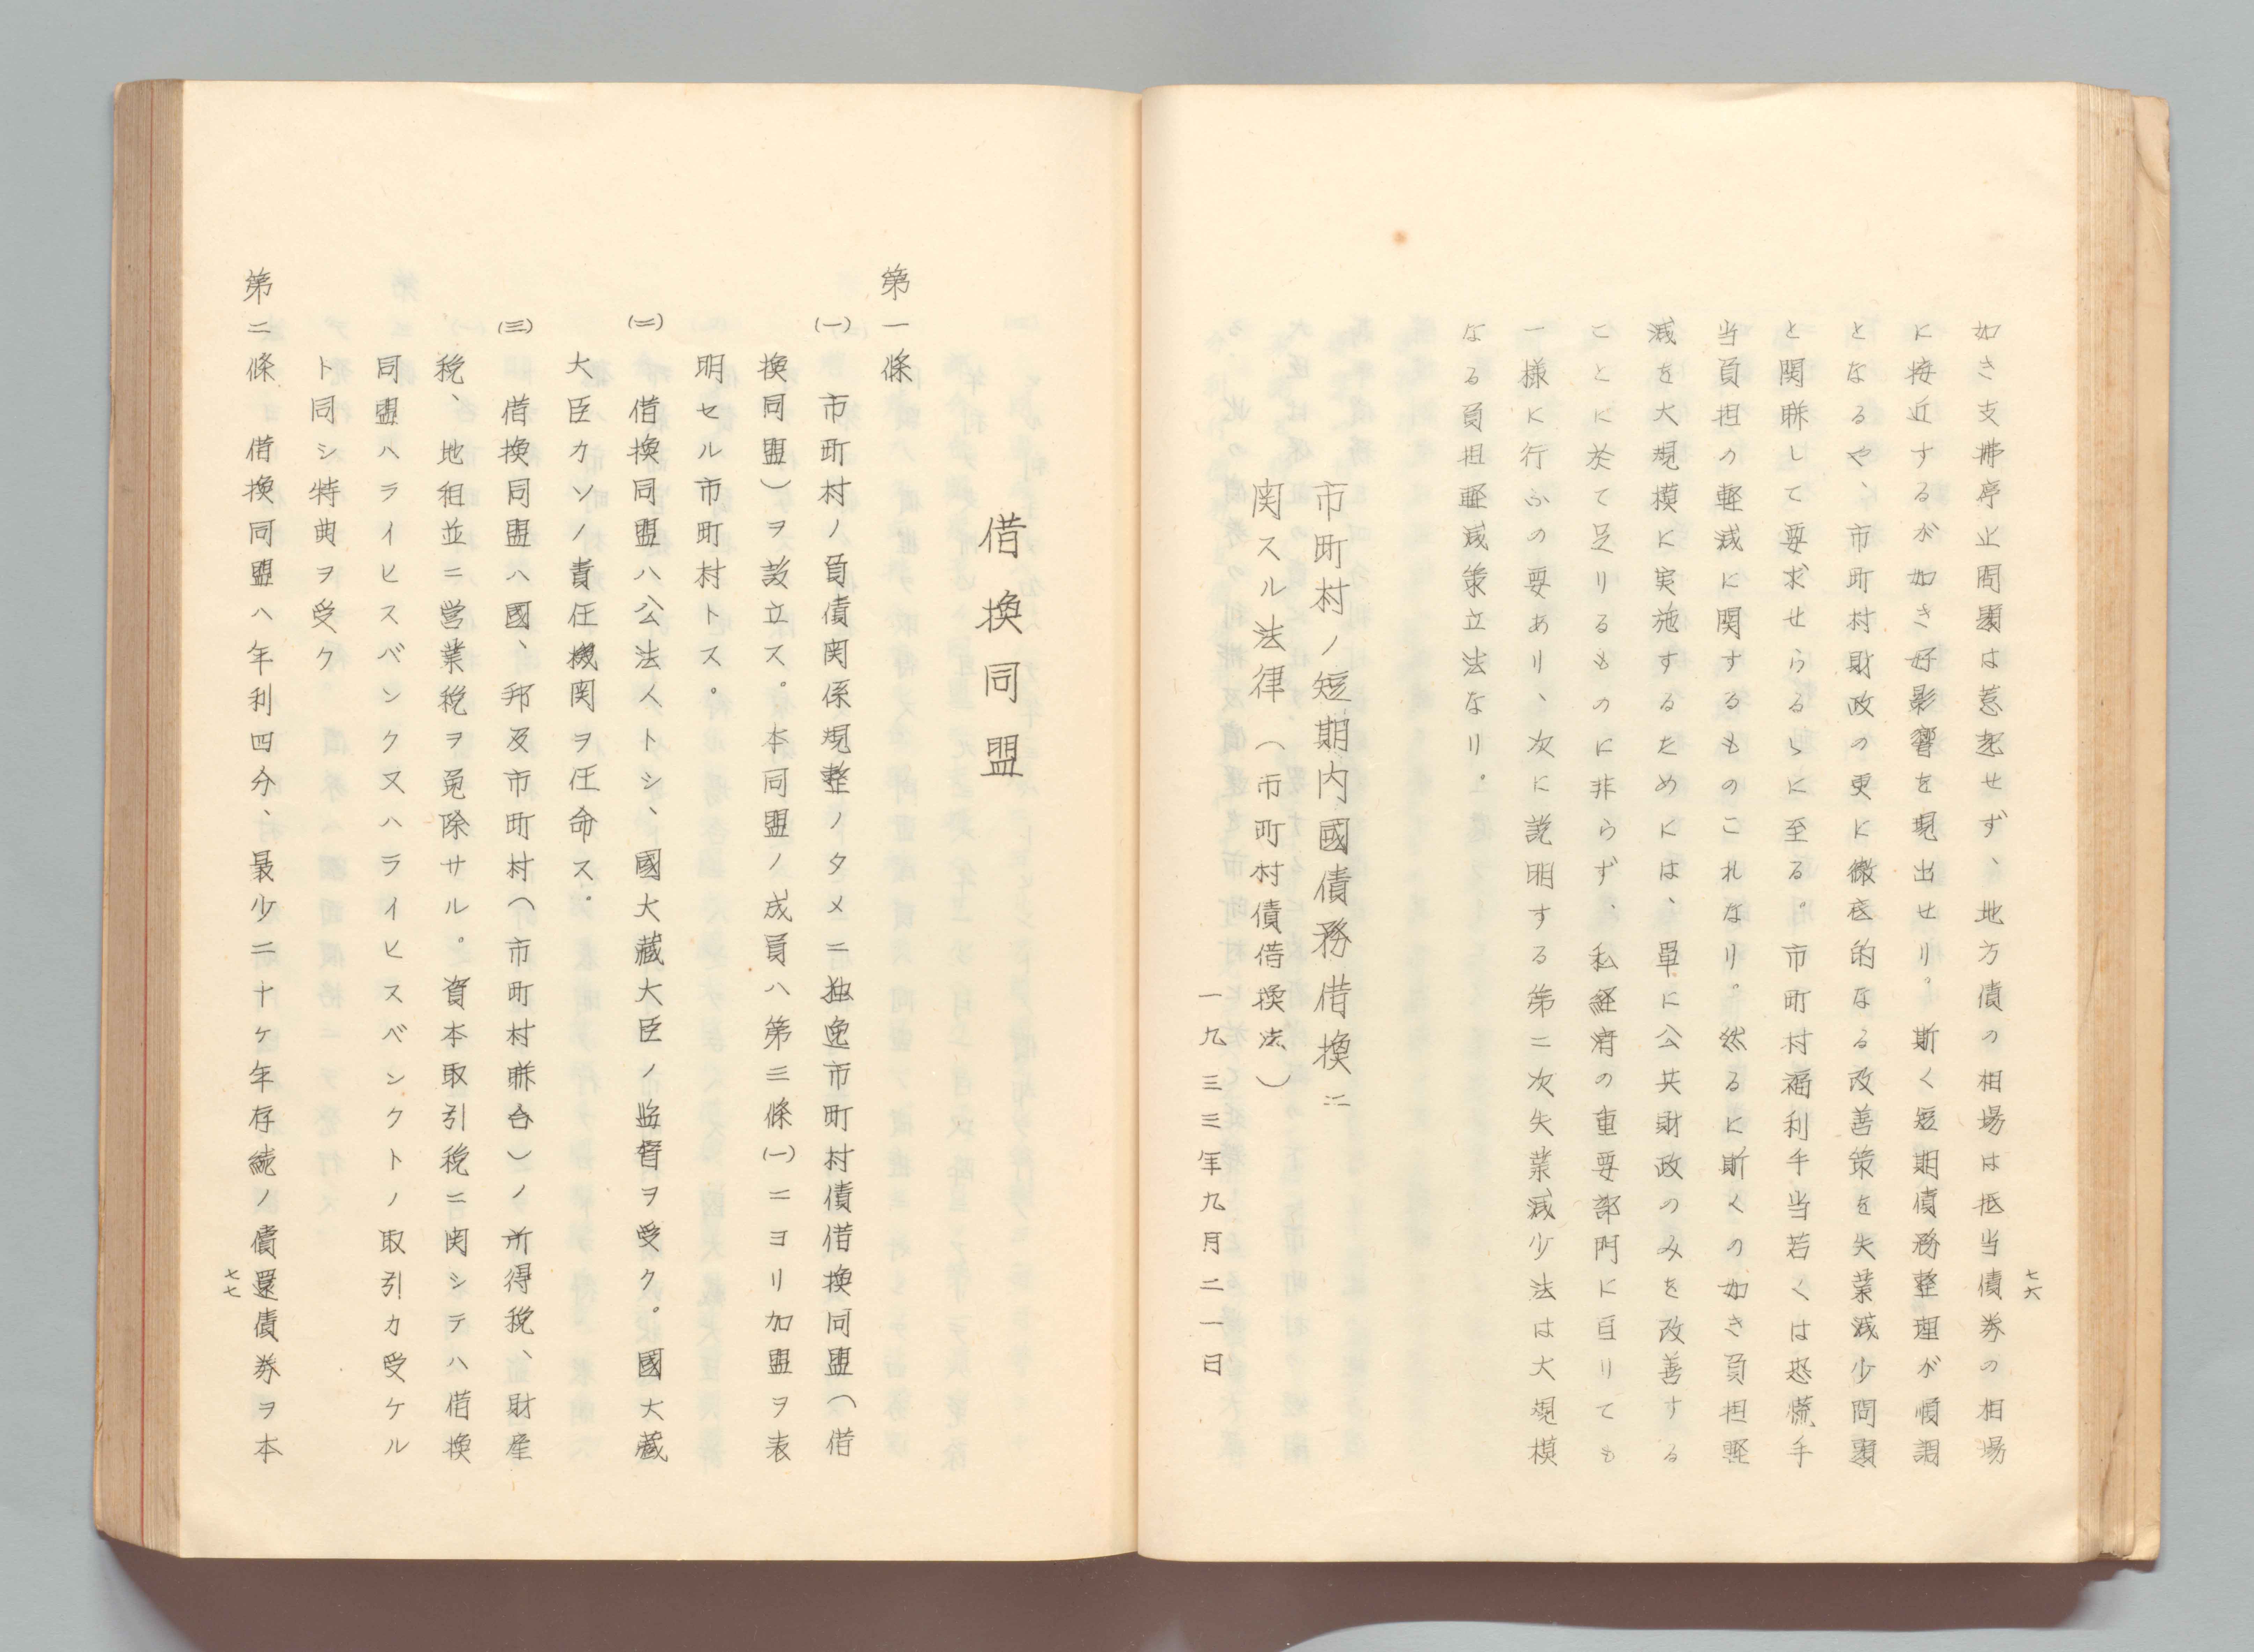 七六
如き支拂停止問題は惹起せず、地方債の相場は抵当債券の相場
に接近するが如き好影響を現出せり。斯く短期債務整理が順調
となるや、市町村財政の更に徹底的なる改善策を失業減少問題
と関聯して要求せらるゝに至る。市町村福利手当若くは恐慌手
当負担の軽減に関するものこれなり。然るに斯くの如き負担軽
減を大規模に実施するためには、単に公共財政のみを改善する
ことに於て足りるものに非らず、私経済の重要部門に亘りても
一様に行ふの要あり、次に説明する第二次失業減少法は大規模
なる負担軽減策立法なり。
市町村ノ短期内國債務借換ニ
関スル法律（市町村債借換法）
一九三三年九月二一日
借換同盟
第一條
(一) 市町村ノ負債関係規整ノタメニ独逸市町村債借換同盟（借
換同盟）ヲ設立ス。本同盟ノ成員ハ第三條(一)ニヨリ加盟ヲ表
明セル市町村トス。
(二) 借換同盟ハ公法人トシ、國大蔵大臣ノ監督ヲ受ク。國大蔵
大臣カソノ責任機関ヲ任命ス。
(三) 借換同盟ハ國、邦及市町村（市町村聯合）ノ所得税、財産
税、地租並ニ営業税ヲ免除サル。資本取引税ニ関シテハ借換
同盟ハライヒスバンク又ハライヒスバンクトノ取引カ受ケル
ト同シ特典ヲ受ク
第二條 借換同盟ハ年利四分、最少二十ケ年存続ノ償還債券ヲ本
七七